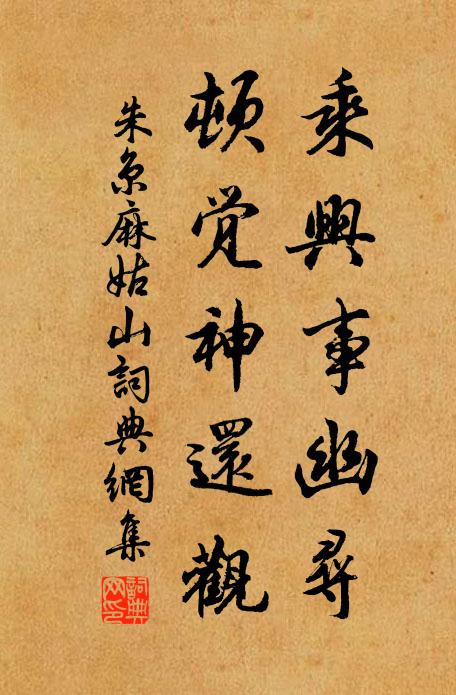 乘興事幽尋
頓觉神還觀
朱京麻姑山詞典網集
詞典网印